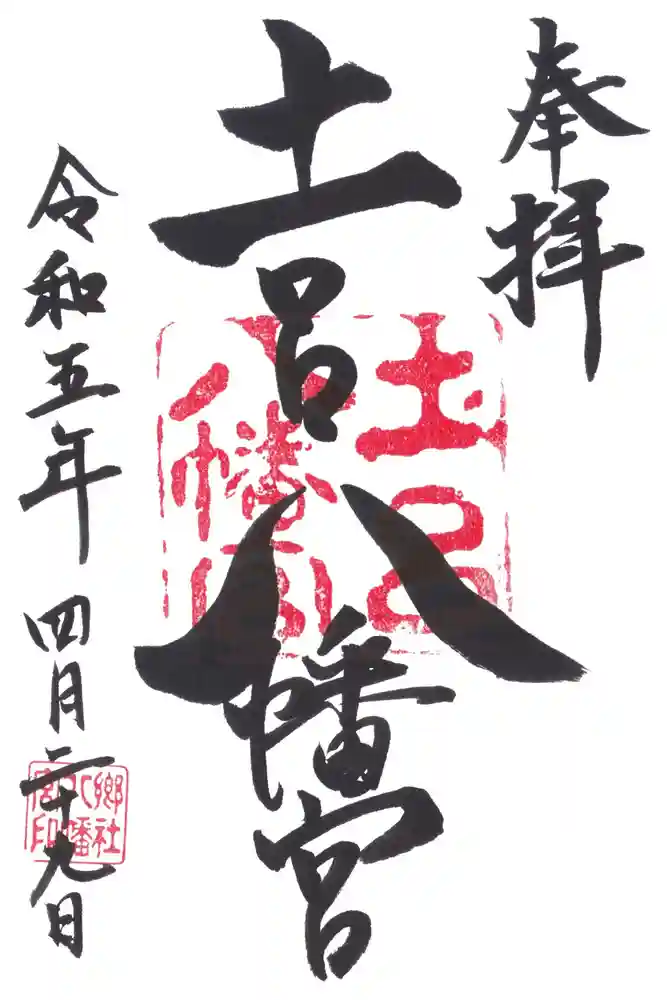 奉拝
土呂八幡宮
土呂
八幡宮
令和五年四月二十九日
郷社
八幡
宮印